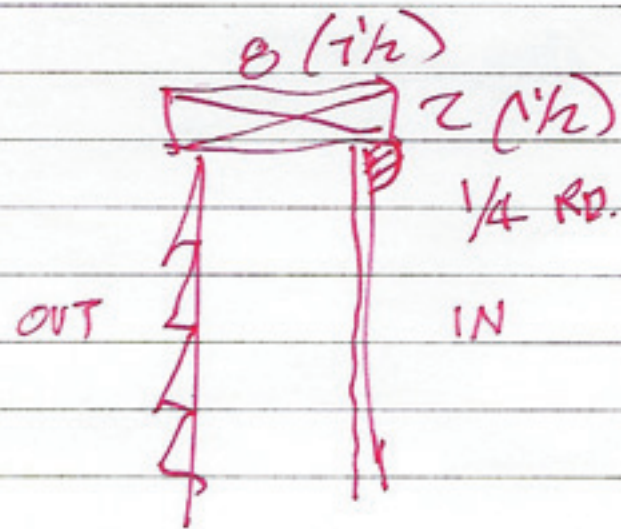 8 (7½)
2 (1½)
1/4 RD.
OUT
IN